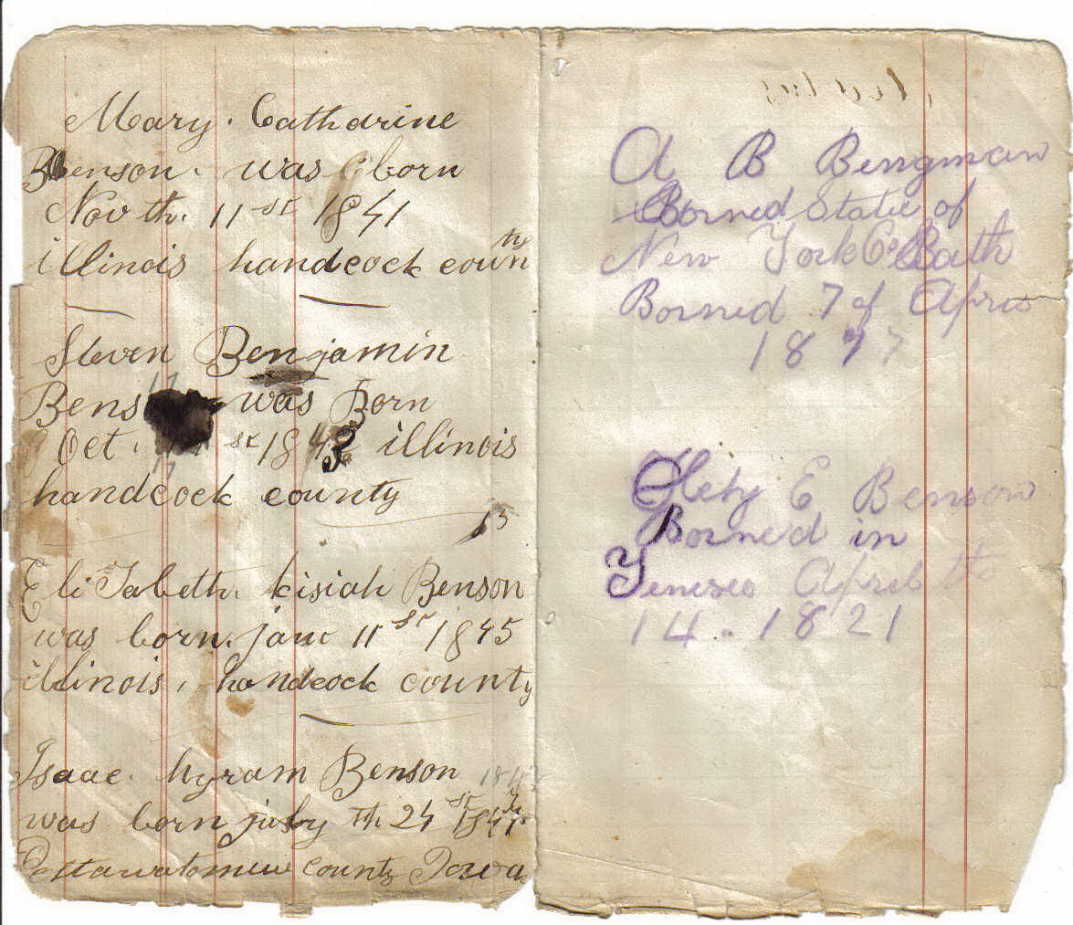 Mary. Catharine
Benson. was born
Nov th. 11 st 1841
illinois handcock coun th
Steven Benjamin
Bens was Born
Oct. st 184 illinois
handcock county
EliSabeth. kisiah Benson
was born. jan 11 st 1845
illinois, handcock county
Isaac. hyram Benson
was born th 24 st
Pottawatomew County Iowa
A B Bengman
Borned State of
New York Co Bath
Borned 7 of
18
E Benson
Borned in
April th
14. 1821